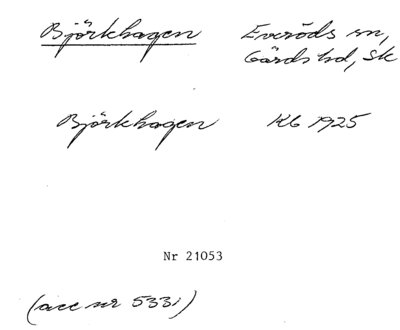 Björkhagen Everöds sn,
Gärds hd, Sk
Björkhagen Kb 1925
Nr 21053
(acc nr 5331)